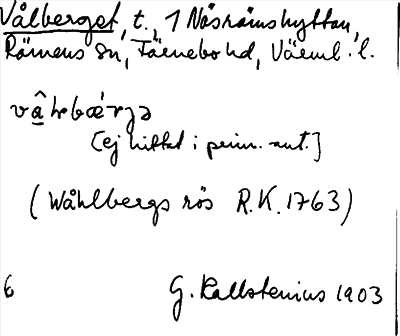 Vålberget, t., 1 Näsrämshyttan,
Rämens sn, Färnebo hd, Värml. l.
vâ̠lsbǽrjə
[ej hittat i prim. mat.]
(Wåhlbergs rös R.K. 1763)
6 G. Kallstenius 1903